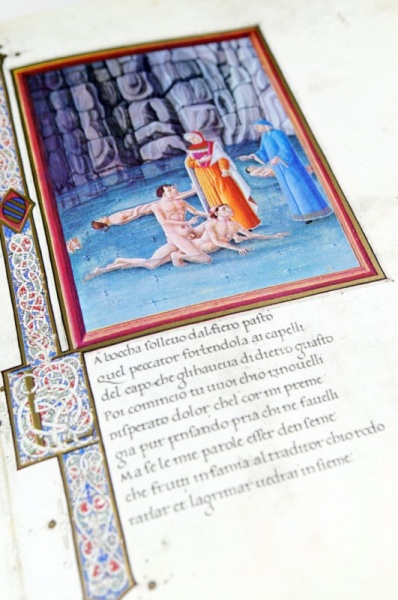 LA boccha solleuo dal fiero pasto
quel peccator forbendola ai capelli
del capo che glihaueua didietro guasto
Poi comincio tu uuoi chio rinouelli
disperato dolor chel cor mi preme
gia pur pensando pria chi ne fauelli
Ma se le mie parole esser den seme
che frutti infamia al traditor chio rodo
parlar et lagrimar uedrai insieme